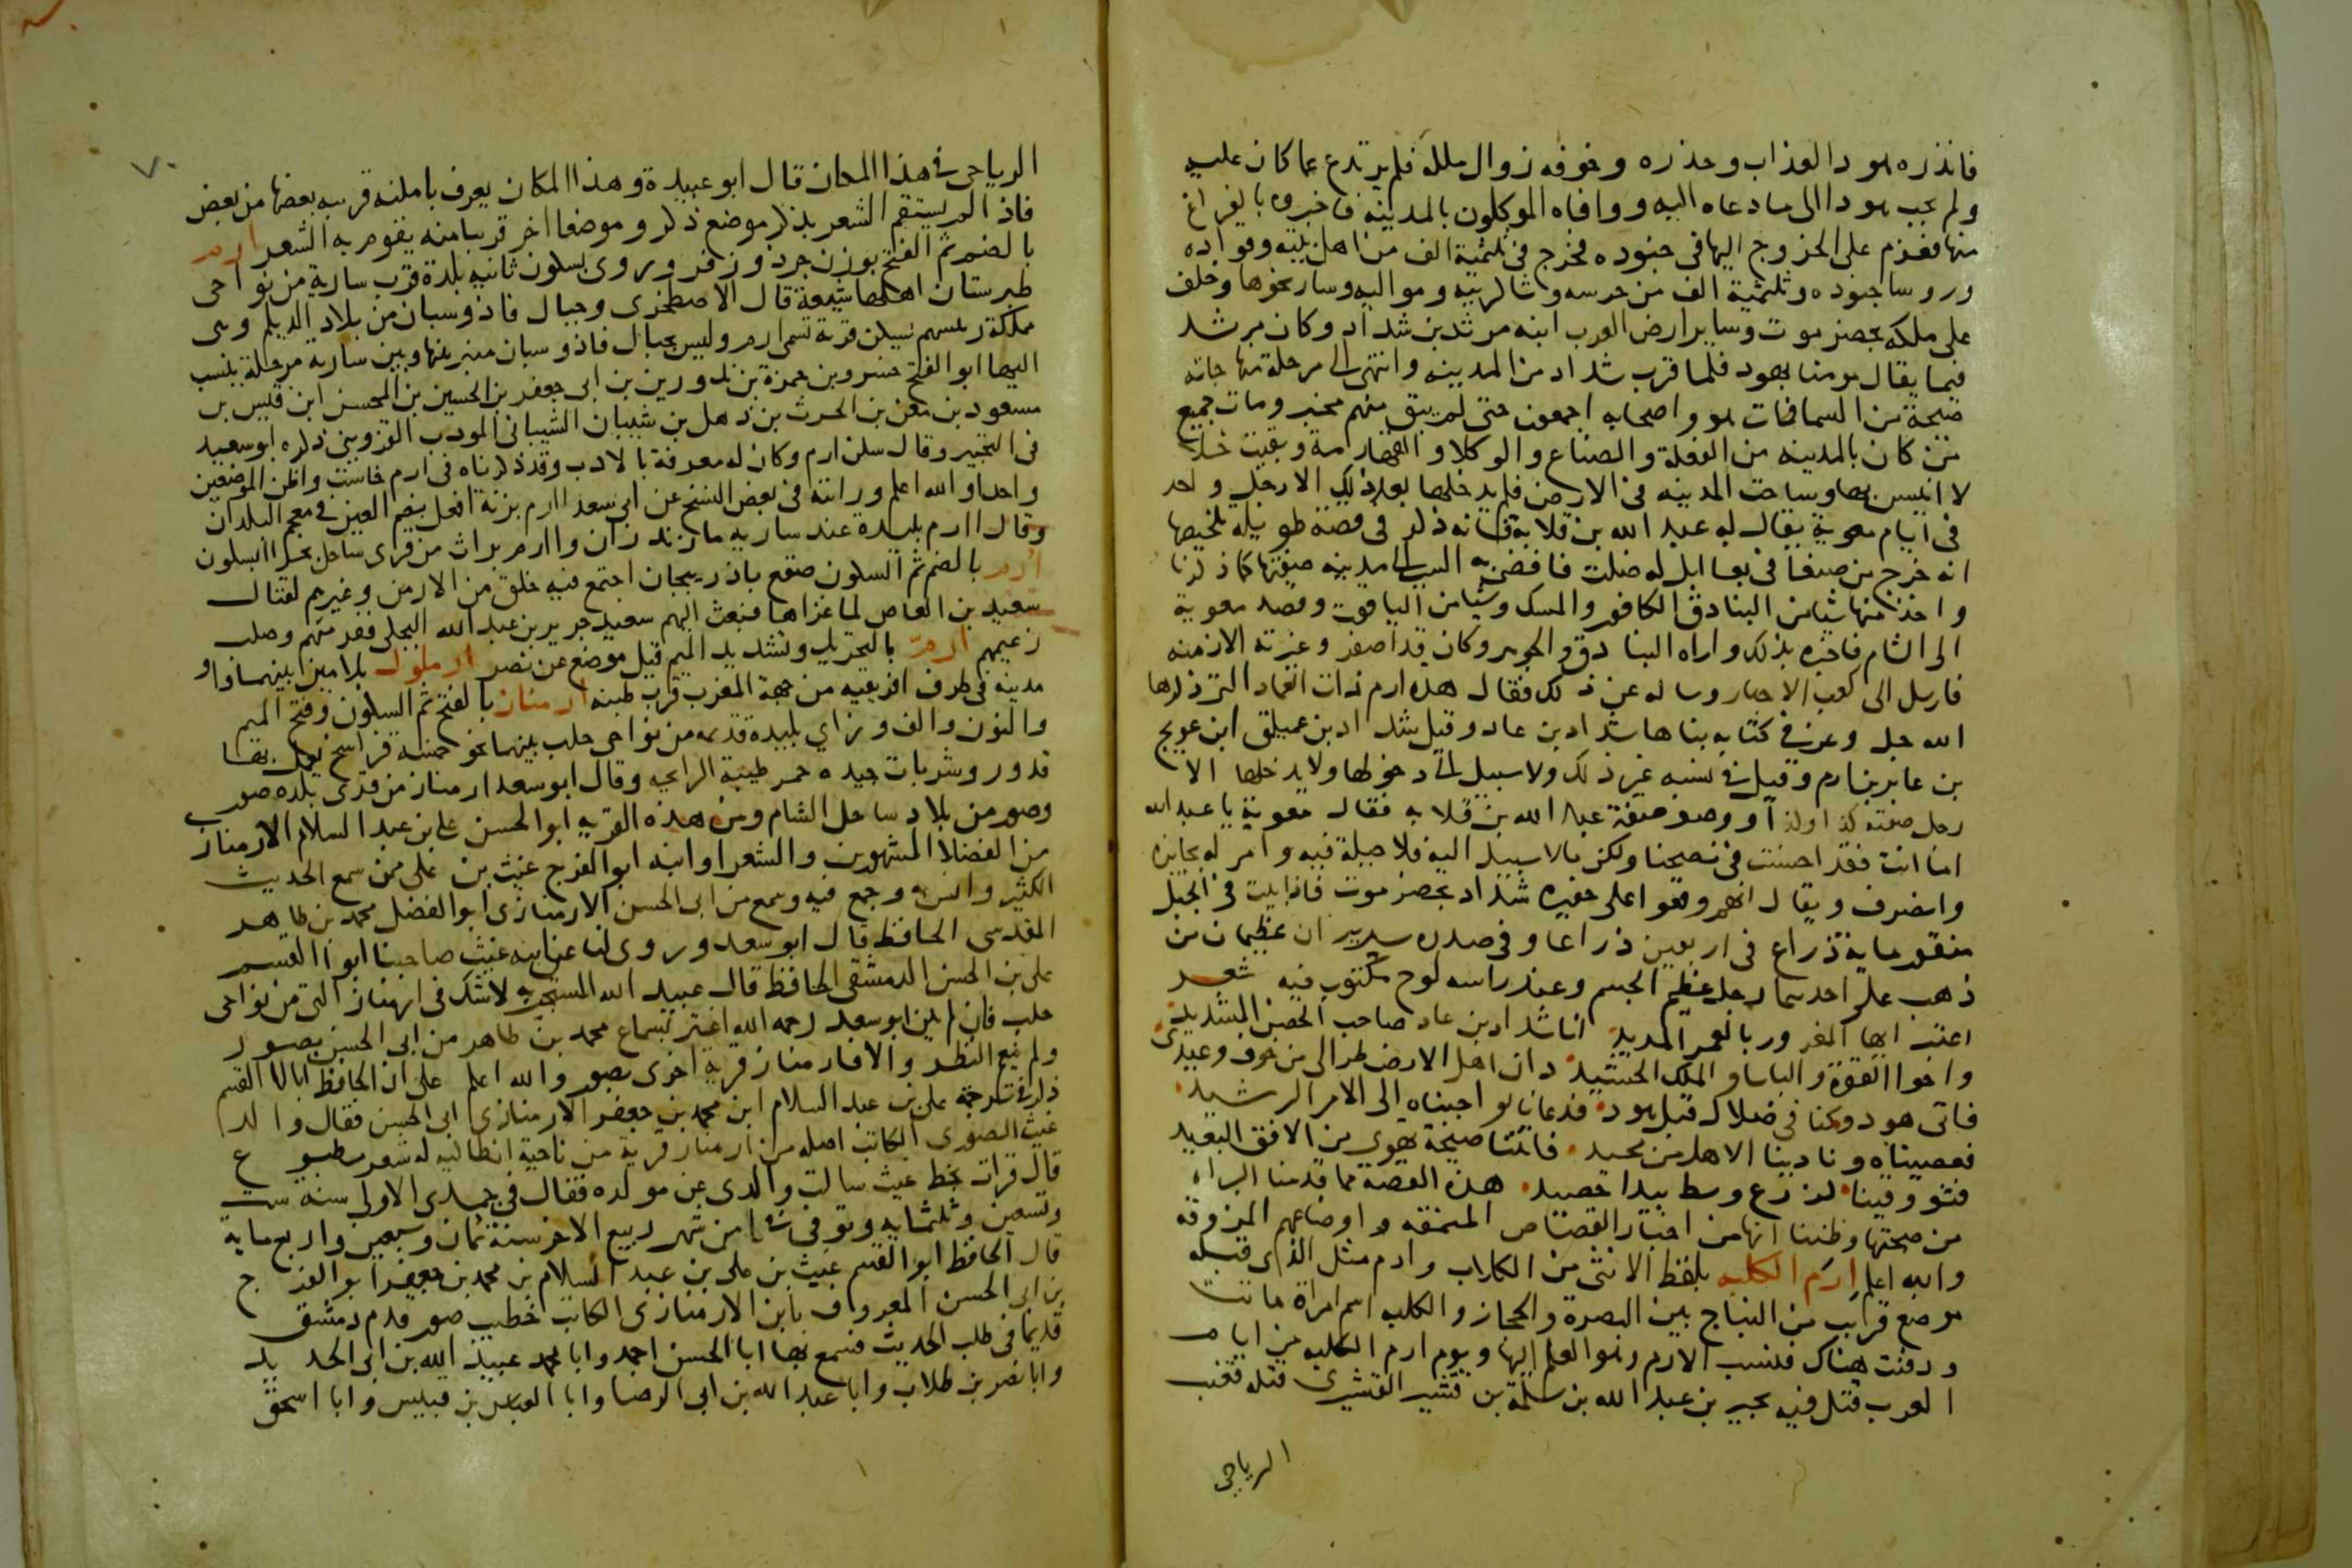 فانذره هود العذاب وحذره وخوفه زوال ملكه فلم يرتدع عما كان عليه
ولم يجب هودا الى ما دعاه اليه ووافاه الموكلون بالمدينه فاخبروه بالفراغ
منها فعزم على الخروج اليها فى جنوده فخرج فى ثلثمية الف من اهل بيته وقواده
وروسا جنوده وثلثمية الف من حرسه وشاكريته ومواليه وسار نحوها وخلف
على ملكه بحضرموت وساير ارض العرب ابنه مرثد بن شداد وكان مرثد
فيما يقال مومنا بهود فلما قرب شداد من المدينه وانتهى الى مرحلة منها جاته
صيحة من السما فمات هو واصحابه اجمعون حتى لم يبق منهم مخبر ومات جميع
من كان بالمدينه من الفعلة والصناع والوكلا والقهارمة وبقيت خلا
لا انيس بها وساخت المدينه فى الارض فلم يدخلها بعد ذلك الا رجل واحد
فى ايام معوية يقال له عبد الله بن قلابة فانه ذكر فى قصة طويله تلخيصها
انه خرج من صنعا فى بغا ابل له ضلت فافضى به السير الى مدينه صفتها كما ذكرنا
واخذ منها شيا من البنادق الكافور والمسك وشيا من الياقوت وقصد معوية
الى الشام فاخبره بذلك واراه البنادق والجوهر وكان قد اصفر وغيرته الازمنه
فارسل الى كعب الاحبار وساله عن ذلك فقال هذه ارم ذات العماد التى ذكرها
الله جل وعز فى كتابه بناها شداد بن عاد وقيل شداد بن عمليق ابن عويج
بن عابر بن ارم وقيل فى نسبه غير ذلك ولا سبيل الى دخولها ولا يدخلها الا
رجل صفته كذا وكذا ووصف صفة عبد الله بن قلابه فقال معوية يا عبد الله
اما انت فقد احسنت فى نصيحنا ولكن مالا سبيل اليه فلا حيلة فيه وامر له بجايزه
وانصرف ويقال انهم وقعوا على حفيره شداد بحضرموت فاذا بيت فى الجبل
منقور ماية ذراع فى اربعين ذراعا وفى صدره سريران عظيمان من
ذهب على احدهما رجل عظيم الجسم وعند راسه لوح مكتوب فيه شعر
اعتبر ايها المغرور بالعمر المديد انا شداد بن عاد صاحب الحصن المشيد
واخوا القوة والباسا والملك الحشيد دان اهل الارض طرا لى من خوف وعيدى
فاتى هود وكنا فى ضلال قبل هود فدعانا لو اجبناه الى الامر الرشيد
فعصيناه ونادينا الا هل من محيد فاتتنا صيحة تهوى من الافق البعيد
فتووفينا كزرع وسط بيدا حصيد هذه القصة مما قدمنا البراء
من صحتها وظننا انها من اخبار القصاص المنمقه واوضاعهم المزوقه
والله اعلم ارم الكلبه بلفظ الانثى من الكلاب وارم مثل الذى قبله
موضع قريب من النباج بين البصرة والحجاز والكلبه اسم امراة ماتت
ودفنت هناك فنسب الارم وهو العلم اليها ويوم ارم الكلبه من ايام
العرب قتل فيه بجير بن عبد الله بن سلمة بن قشير القشيرى قتله قعنب
الرياحى
الرياحى فى هذا المكان قال ابو عبيدة وهذا المكان يعرف بامكنه قريبه بعضها من بعض
فاذا لم يستقم الشعر بذكر موضع ذكر وموضعا اخر قريبا منه يقوم به الشعر ارم
بالضم ثم الفتح بوزن جرذ وزفر وروى بسكون ثانيه بلدة قرب سارية من نواحى
طبرستان اهلها شيعة قال الاصطخرى وجبال فاذوسبان من بلاد الديلم وهى
مملكة رئيسهم يسكن قرية تسمى ارم وليس بجبال فاذوسبان منبر بينها وبين سارية مرحلة ينسب
اليها ابو الفتح خسرو بن حمزة بن بندورين بن ابى جعفر بن الحسين بن المحسن ابن قيس بن
مسعود بن معن بن الحرث بن ذهل بن شيبان الشيبانى المودب القزوينى ذكره ابو سعيد
فى التحبير وقال سكن ارم وكان له معرفة بالادب وقد ذكرناه فى ارم خاست واظن الموضعين
واحدا والله اعلم ورايته فى بعض النسخ عن ابى سعد اارم بزنة افعل بضم العين فى معجم البلدان
وقال اارم بلدة عند ساريه مازندران واارم براث من قرى ساحل بحر ابسكون
ارم بالضم ثم السكون صقع باذربيجان اجتمع فيه خلق من الارمن وغيرهم لقتال
سعيد بن العاص لما غزاها فبعث اليهم سعيد جرير بن عبد الله البجلى فهزمهم وصلب
زعيمهم ارم بالتحريك وتشديد الميم قيل موضع عن نصر ارملول بلامين بينهما واو
مدينه فى طرف افريقيه من جهة المغرب قرب طبنه ارمناز بالفتح ثم السكون وفتح الميم
والنون والف وزاي بليدة قديمه من نواحى حلب بينهما نحو خمسه فراسخ يعمل بها
قدور وشربات جيده حمر طيبة الرائحه وقال ابو سعد ارمناز من قرى بلده صور
وصور من بلاد ساحل الشام ومن هذه القريه ابو الحسن على بن عبد السلام الارمناز
من الفضلا المشهورين والشعرا وابنه ابو الفرج غيث بن على ممن سمع الحديث
الكثير وانس به وجمع فيه وسمع من ابى الحسن الارمنازى ابو الفضل محمد بن طاهر
المقدسى الحافظ قال ابو سعد وروى لنا عن ابنه غيث صاحبنا ابو القسم
على بن الحسن الدمشقى الحافظ قال عبيد الله المستجير به لا شك فى ارمناز التى من نواحى
حلب فان لم يكن ابو سعد رحمه الله اغتر بسماع محمد بن طاهر من ابى الحسن بصور
ولم ينعم النظر والا فارمناز قرية اخرى بصور والله اعلم على ان الحافظ ابا القسم
ذكر فى ترجمة على بن عبد السلام ابن محمد بن جعفر الارمنازى ابى الحسن فقال والد
غيث الصورى الكاتب اصله من ارمناز قرية من ناحية انطاكيه له شعر مطبوع
قال قرات بخط غيث سالت والدى عن مولده فقال فى جمادى الاولى سنه ست
وتسعين وثلثمايه وتوفى فى ثامن شهر ربيع الاخر سنة ثمان وسبعين واربع مايه
قال الحافظ ابو القسم غيث بن على بن عبد السلام بن محمد بن جعفر ابو الفرج
بن ابى الحسن المعروف بابن الارمنازى الكاتب خطيب صور قدم دمشق
قديما فى طلب الحديث فسمع بها ابا الحسن احمد وابا محمد عبيد الله بن ابى الحديد
وابا نصر بن طلاب وابا عبد الله بن ابى الرضا وابا العباس بن قبيس وابا اسحق